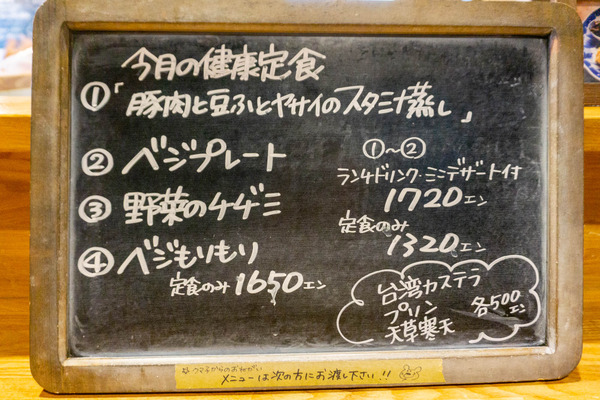 今月の健康定食
①「豚肉と豆ふとヤサイのスタミナ蒸し」
②ベジプレート
③野菜のチヂミ
④ベジもりもり
定食のみ1650エン
①～②
ランチドリンク・ミニデザート付
1720エン
定食のみ
1320エン
台湾カステラ
プリン
天草寒天
各500エン
メニューは次の方にお渡し下さい!!